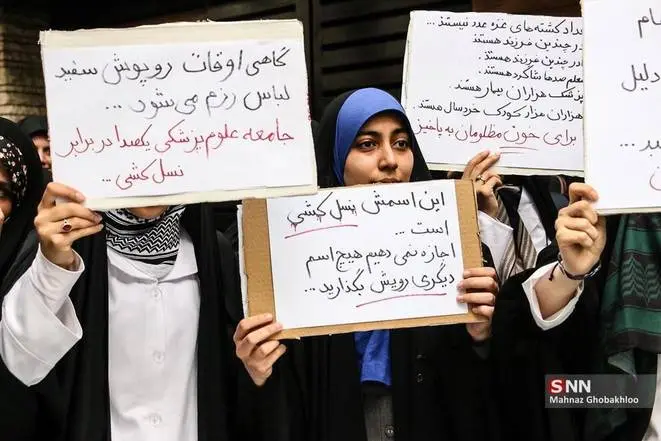 گاهی اوقات روپوش سفید
لباس رزم می‌شود...
جامعه علوم پزشکی یکصدا در برابر
نسل کشی...
این اسمش نسل کشی
است...
اجازه نمی دهیم هیچ اسم
دیگری رویش بگذارید...
تعداد کشته‌های غزه عدد نیستند...
مادر چندین فرزند هستند
پدر چندین فرزند هستند.
معلم صدها شاگرد هستند.
پزشک هزاران بیمار هستند
هزاران هزار کودک خردسال هستند
برای خون مظلومان به پاخیز
دلیل
SNN
Mahnaz Ghobakhloo